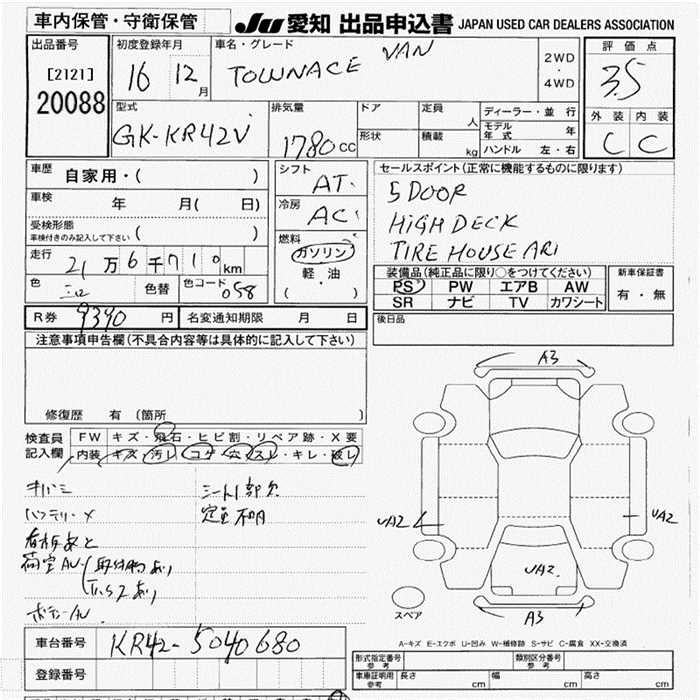 車内保管・守衛保管
JU 愛知 出品申込書 JAPAN USED CAR DEALERS ASSOCIATION
出品番号
[2121]
20088
初度登録年月
16 12月
車名・グレード
TOWNACE VAN
2WD
・
4WD
評価点
3.5
外装 内装
C C
型式
GK-KR42V
排気量
1780 CC
ドア
形状
定員 人
積載 kg
ディーラー・並行
モデル年式 年
ハンドル 左・右
車歴 自家用・( )
車検 年 月( 日)
受検形態
車検付きのみ記入して下さい ( )
走行 21万6千710km
色 シロ 色替 色コード 058
シフト
AT
冷房
AC
燃料
ガソリン
軽・油
( )
セールスポイント(正常に機能するものに限ります)
5 DOOR
HIGH DECK
TIRE HOUSE ARI
装備品(純正品に限り○をつけてください)
PS PW エアB AW
SR ナビ TV カワシート
新車保証書
有・無
R券 9390円 名変通知期限 月 日
後日品
注意事項申告欄(不具合内容等は具体的に記入して下さい)
修復歴 有 (箇所 )
検査員記入欄
FW キズ・飛石・ヒビ割・リペア跡・X要
内装 キズ・汚レ・コゲ・穴・スレ・キレ・破レ
キバミ
シート1部欠
バッテリーX
定量不明
看板あと
荷室AU(取付物あり
A3
UA2
UA2
UA2
A3
スペア
A-キズ E-エクボ U-凹み W-補修跡 S-サビ C-腐食 XX-交換済
車台番号 KR42-5040680
登録番号
形式指定番号 参考
類別区分番号 参考
車庫証明用 参考 長さ cm 幅 cm 高さ cm